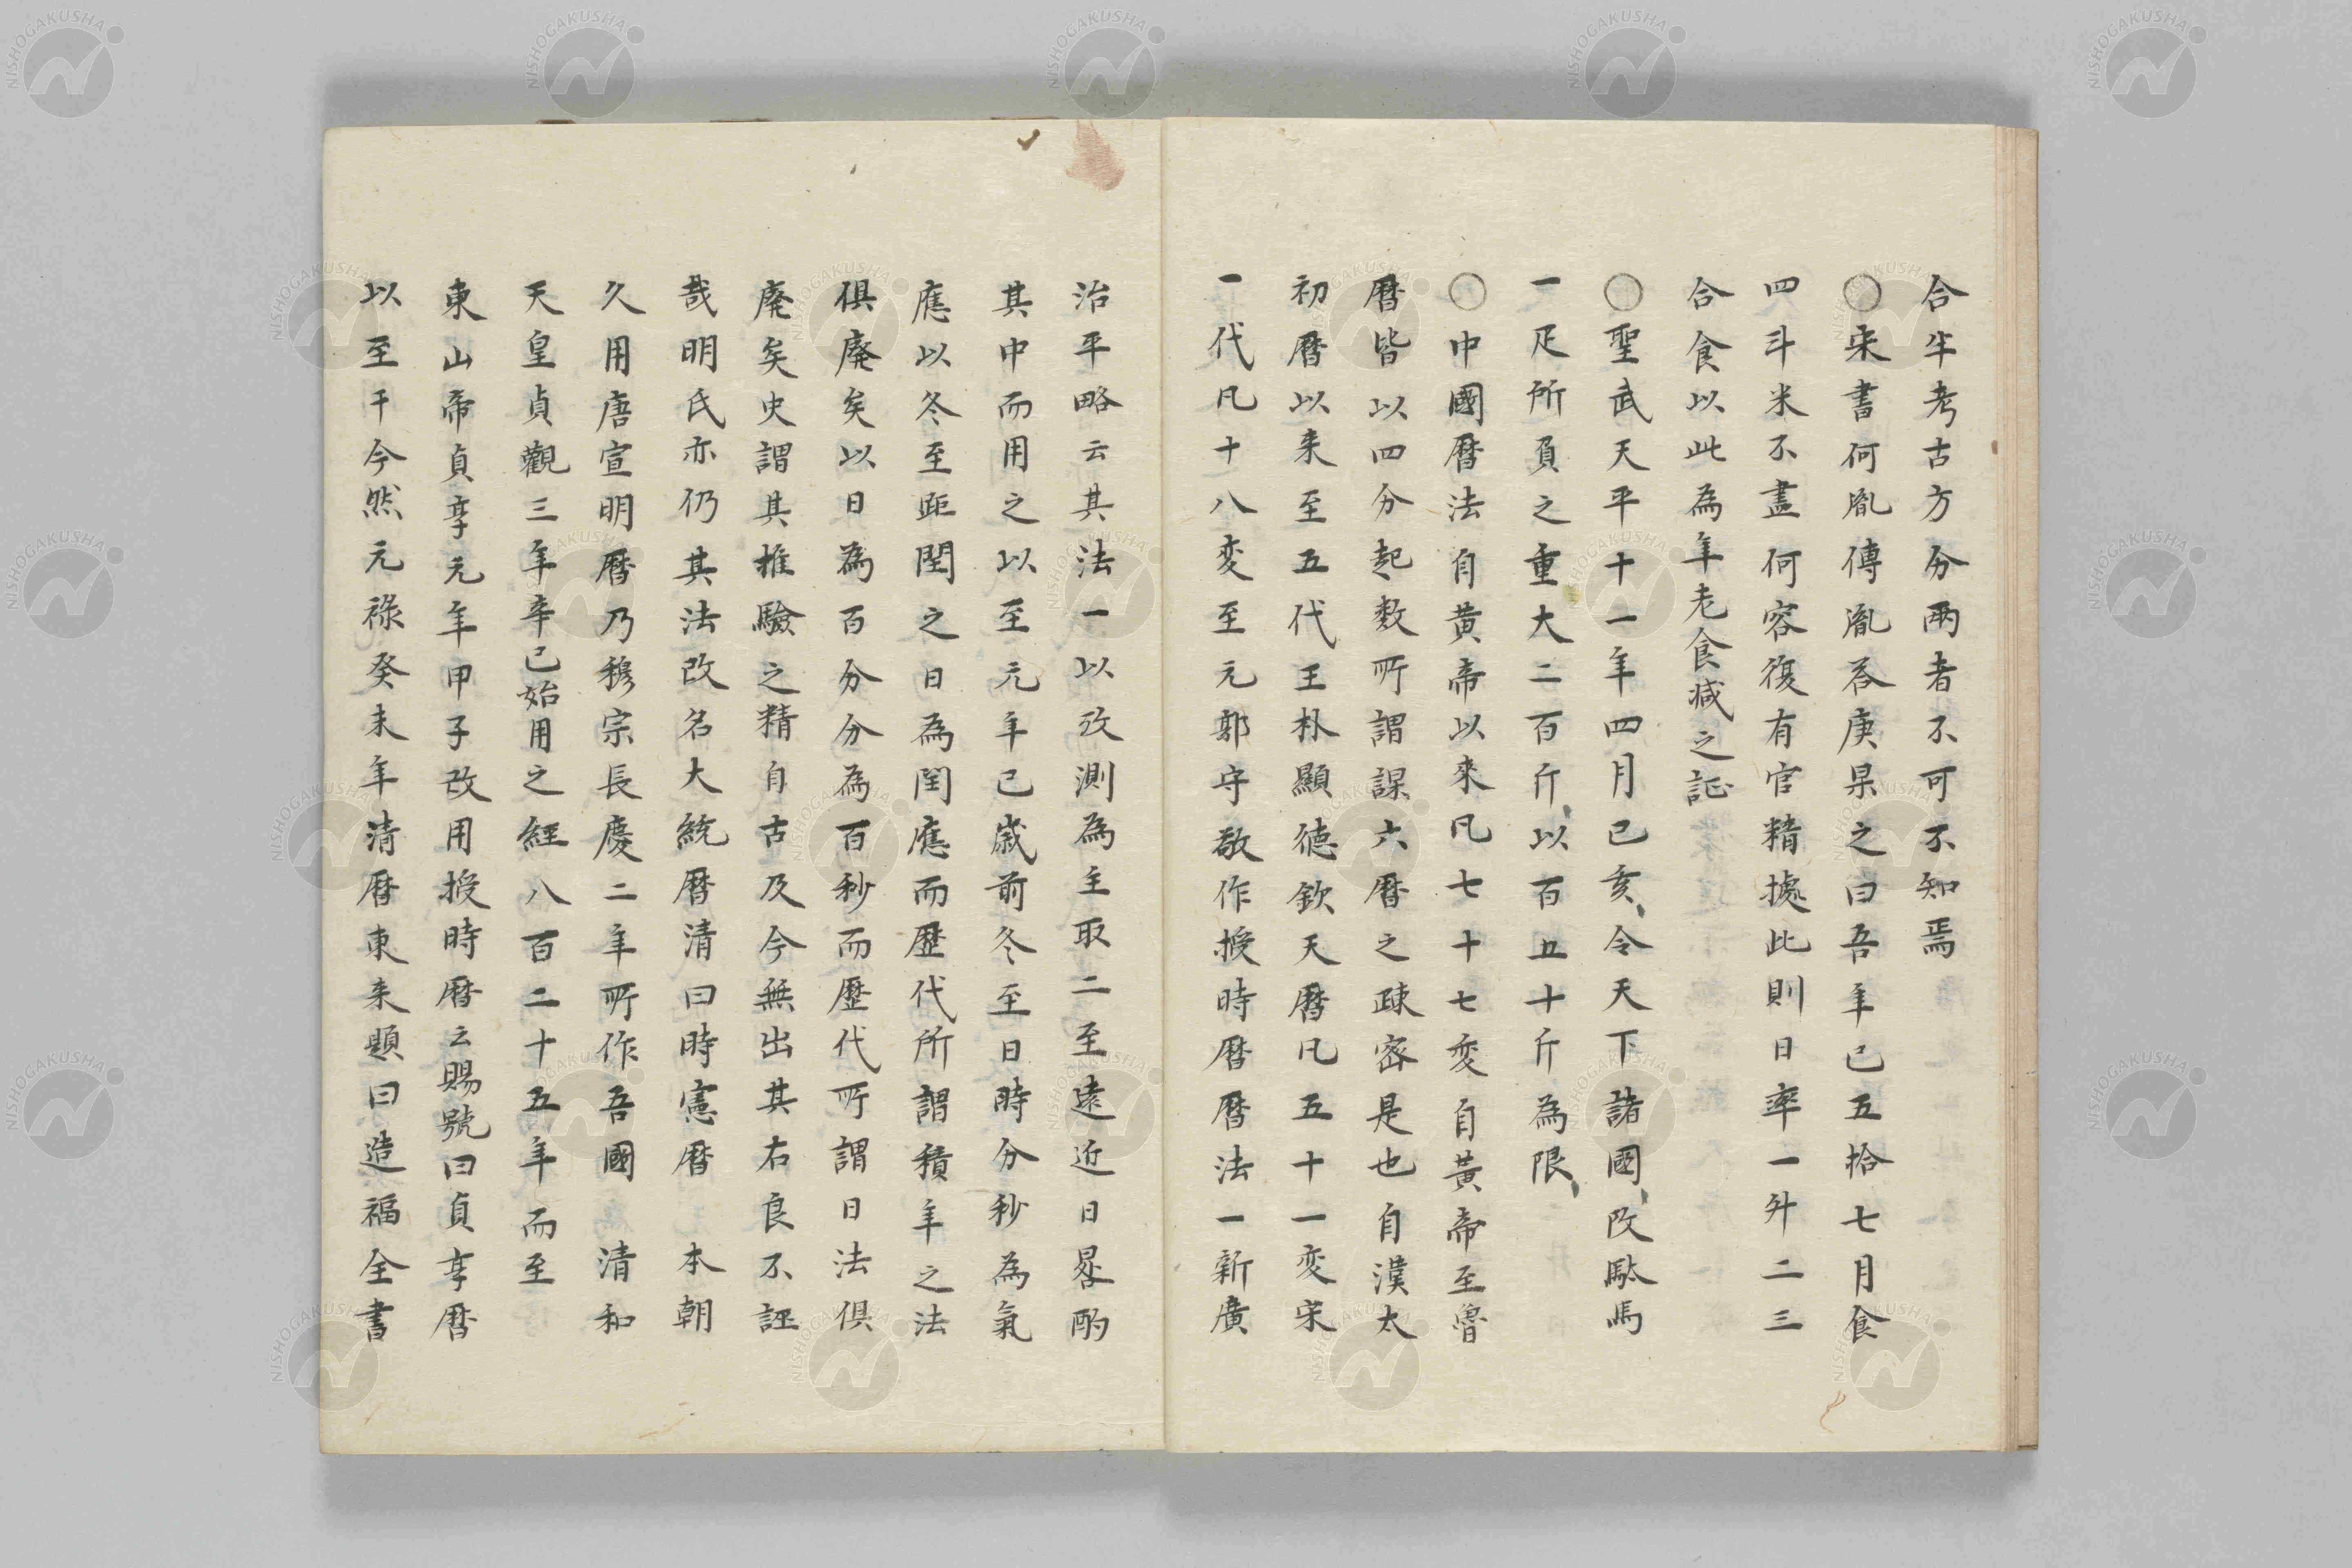 合半考古方分兩者不可不知焉
○宋書何胤傳胤荅庚杲之曰吾年已五拾七月食
四斗米不盡何容復有官精據此則日率一升二三
合食以此為年老食減之証
○聖武天平十一年四月己亥、令天下諸國、改駄馬
一疋所負之重大二百斤、以百五十斤為限、
○中國曆法自黄帝以來凡七十七变自黄帝至魯
曆皆以四分起数所謂謀六曆之疎密是也自漢太
初曆以来至五代王朴顯徳欽天曆凡五十一変宋
一代凡十八変至元郭守敬作授時曆曆法一新廣
治平略云其法一以攷測為主取二至遠近日晷酌
其中而用之以至元年己歳前冬至日時分秒為氣
應以冬至距閏之日為閏應而歷代所謂積年之法
俱廢矣以日為百分分為百秒而歷代所謂日法俱
廢矣史謂其推驗之精自古及今無出其右良不誣
哉明氏亦仍其法改名大統曆清曰時憲曆 本朝
久用唐宣明曆乃穆宗長慶二年所作吾國 清和
天皇貞觀三年辛巳始用之経八百二十五年而至
東山帝貞享元年甲子改用授時曆云賜號曰貞享曆
以至于今然元祿癸未年清曆東来題曰造福全書